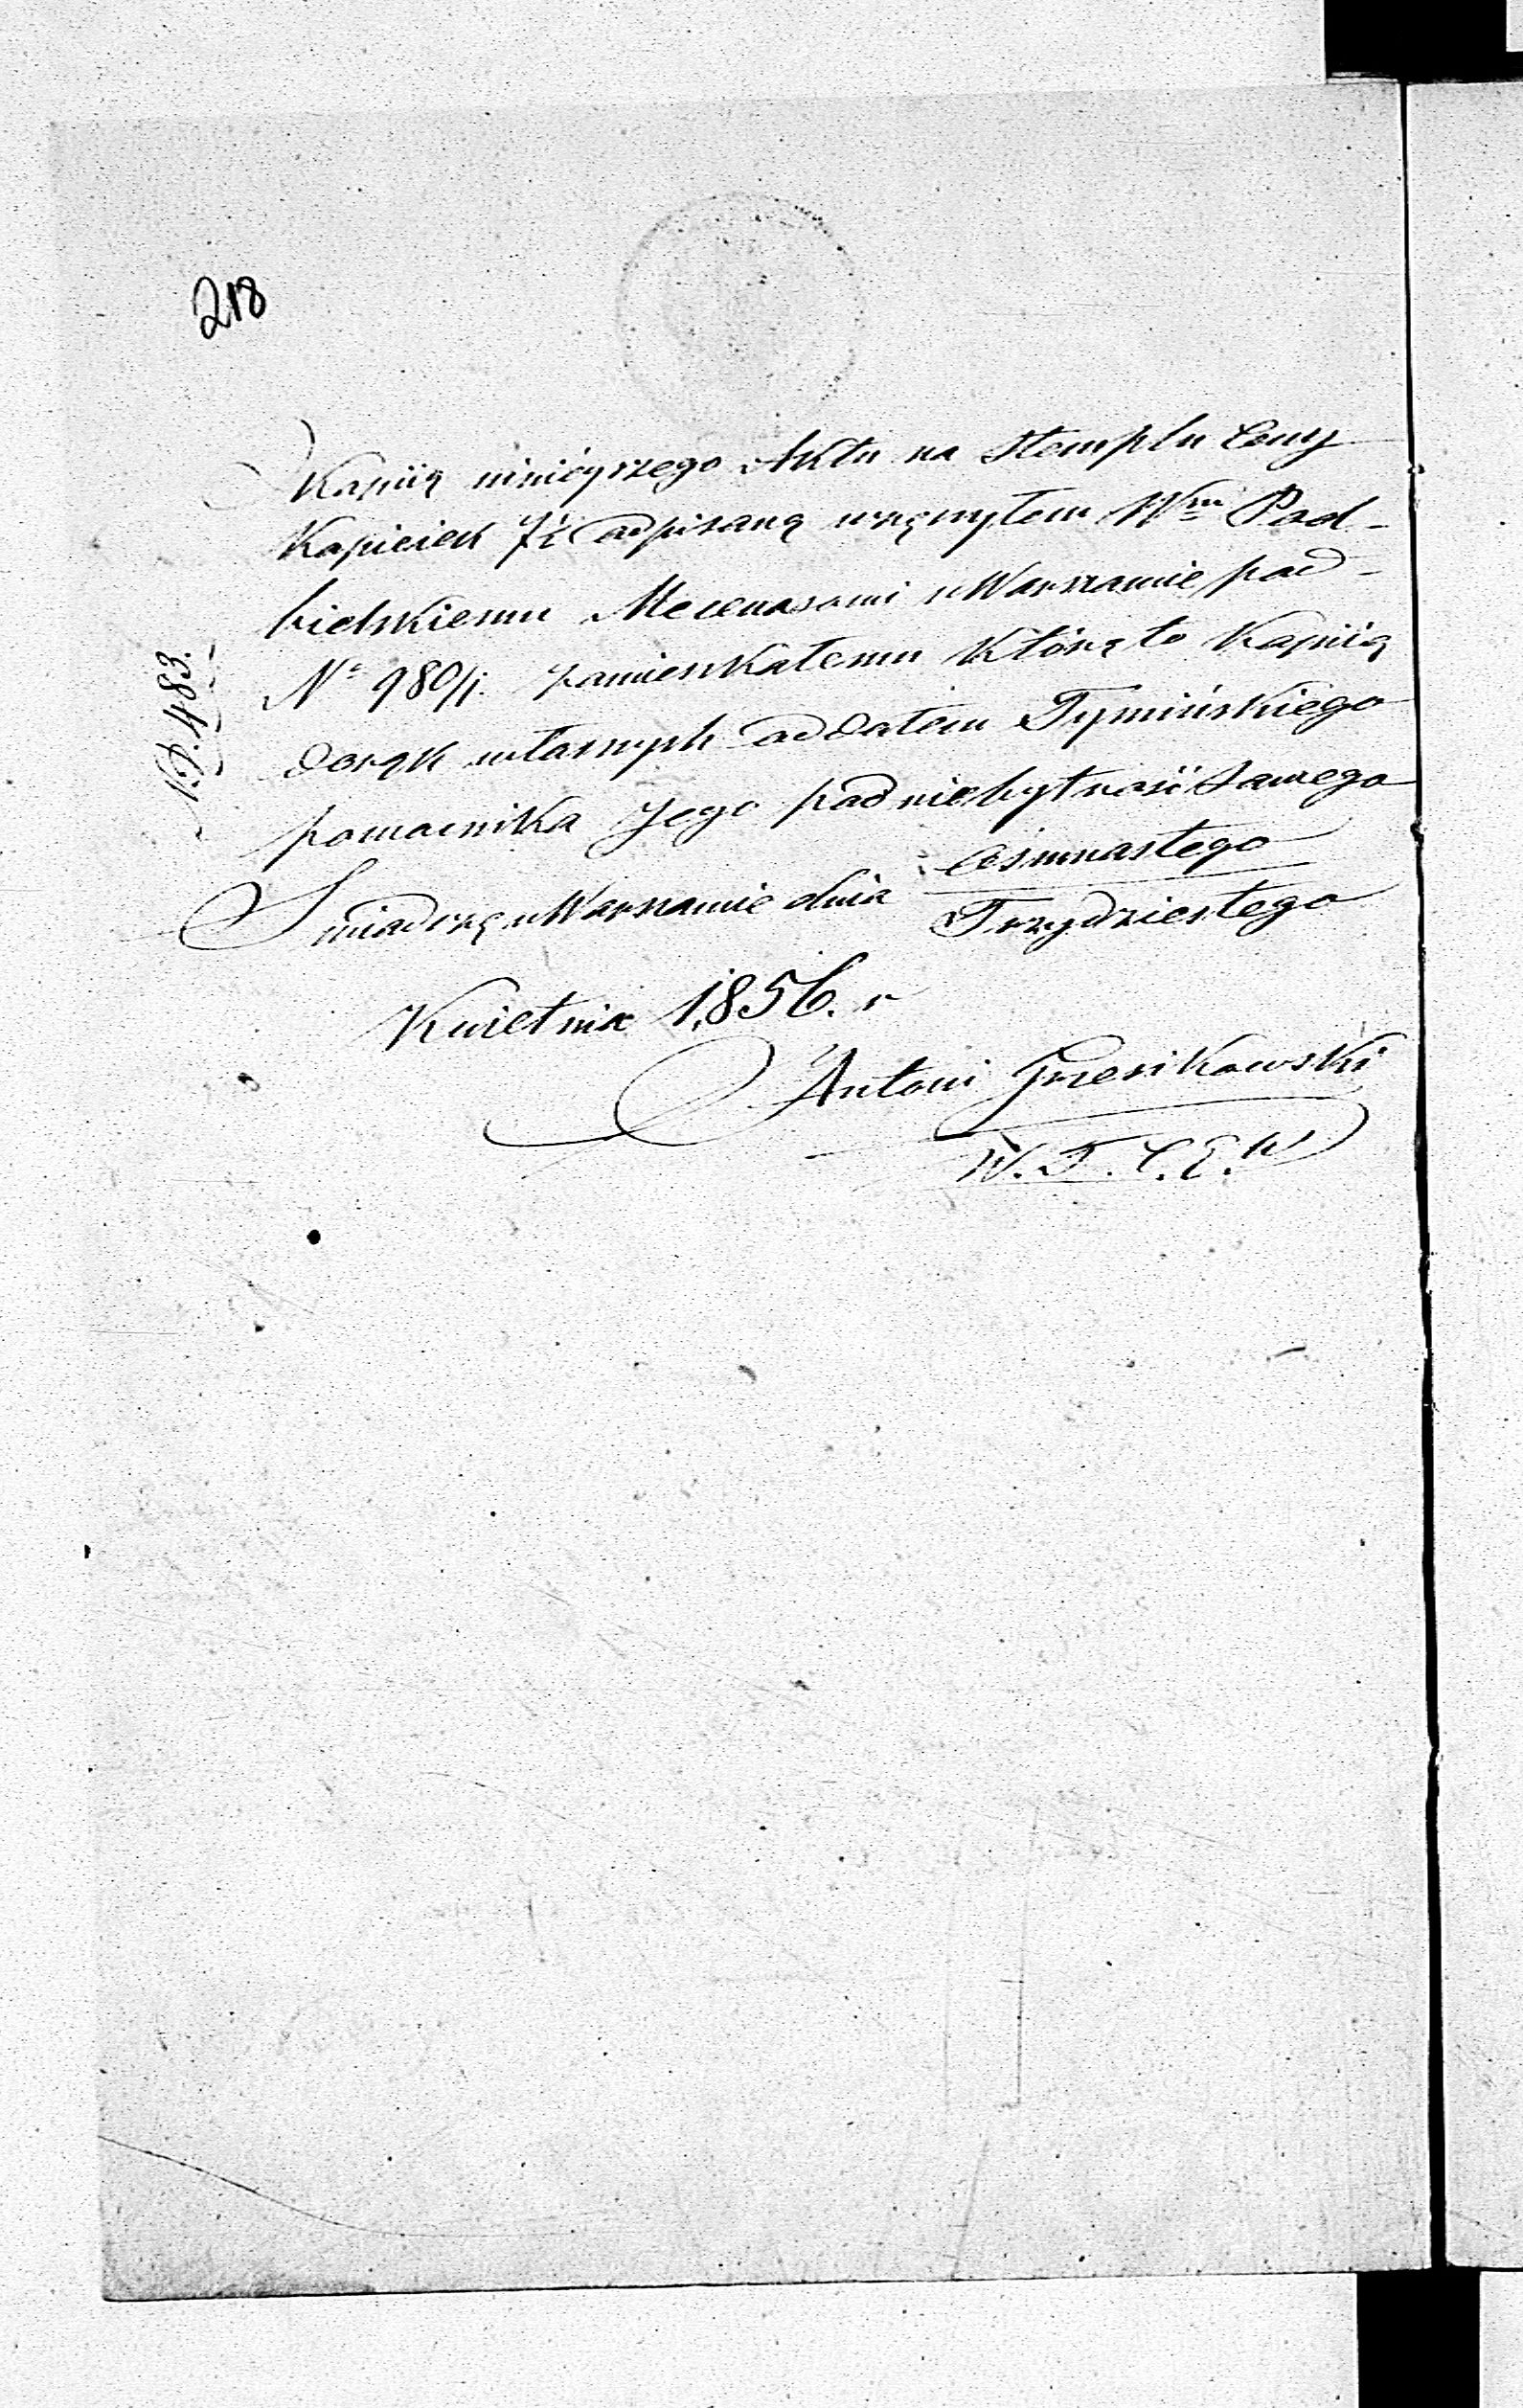 218
Kopiią ninieyszego Aktu na Stemplu Ceny
Kopieiek 7½ odpisaną wręczyłem Wmu Pod-
bielskiemu Mecenasowi w Warszawie pod
No 980/1. zamieszkałemu którą to Kopiią
do rąk własnych oddałem Tymińskiego
pomocnika Jego pod niebytność samego
Świadczę w Warszawie dnia Osmnastego
Trzydziestego
Kwietnia 1856. r
Antoni Grzesikowski
W. T. C. G. W
N.D. 483.